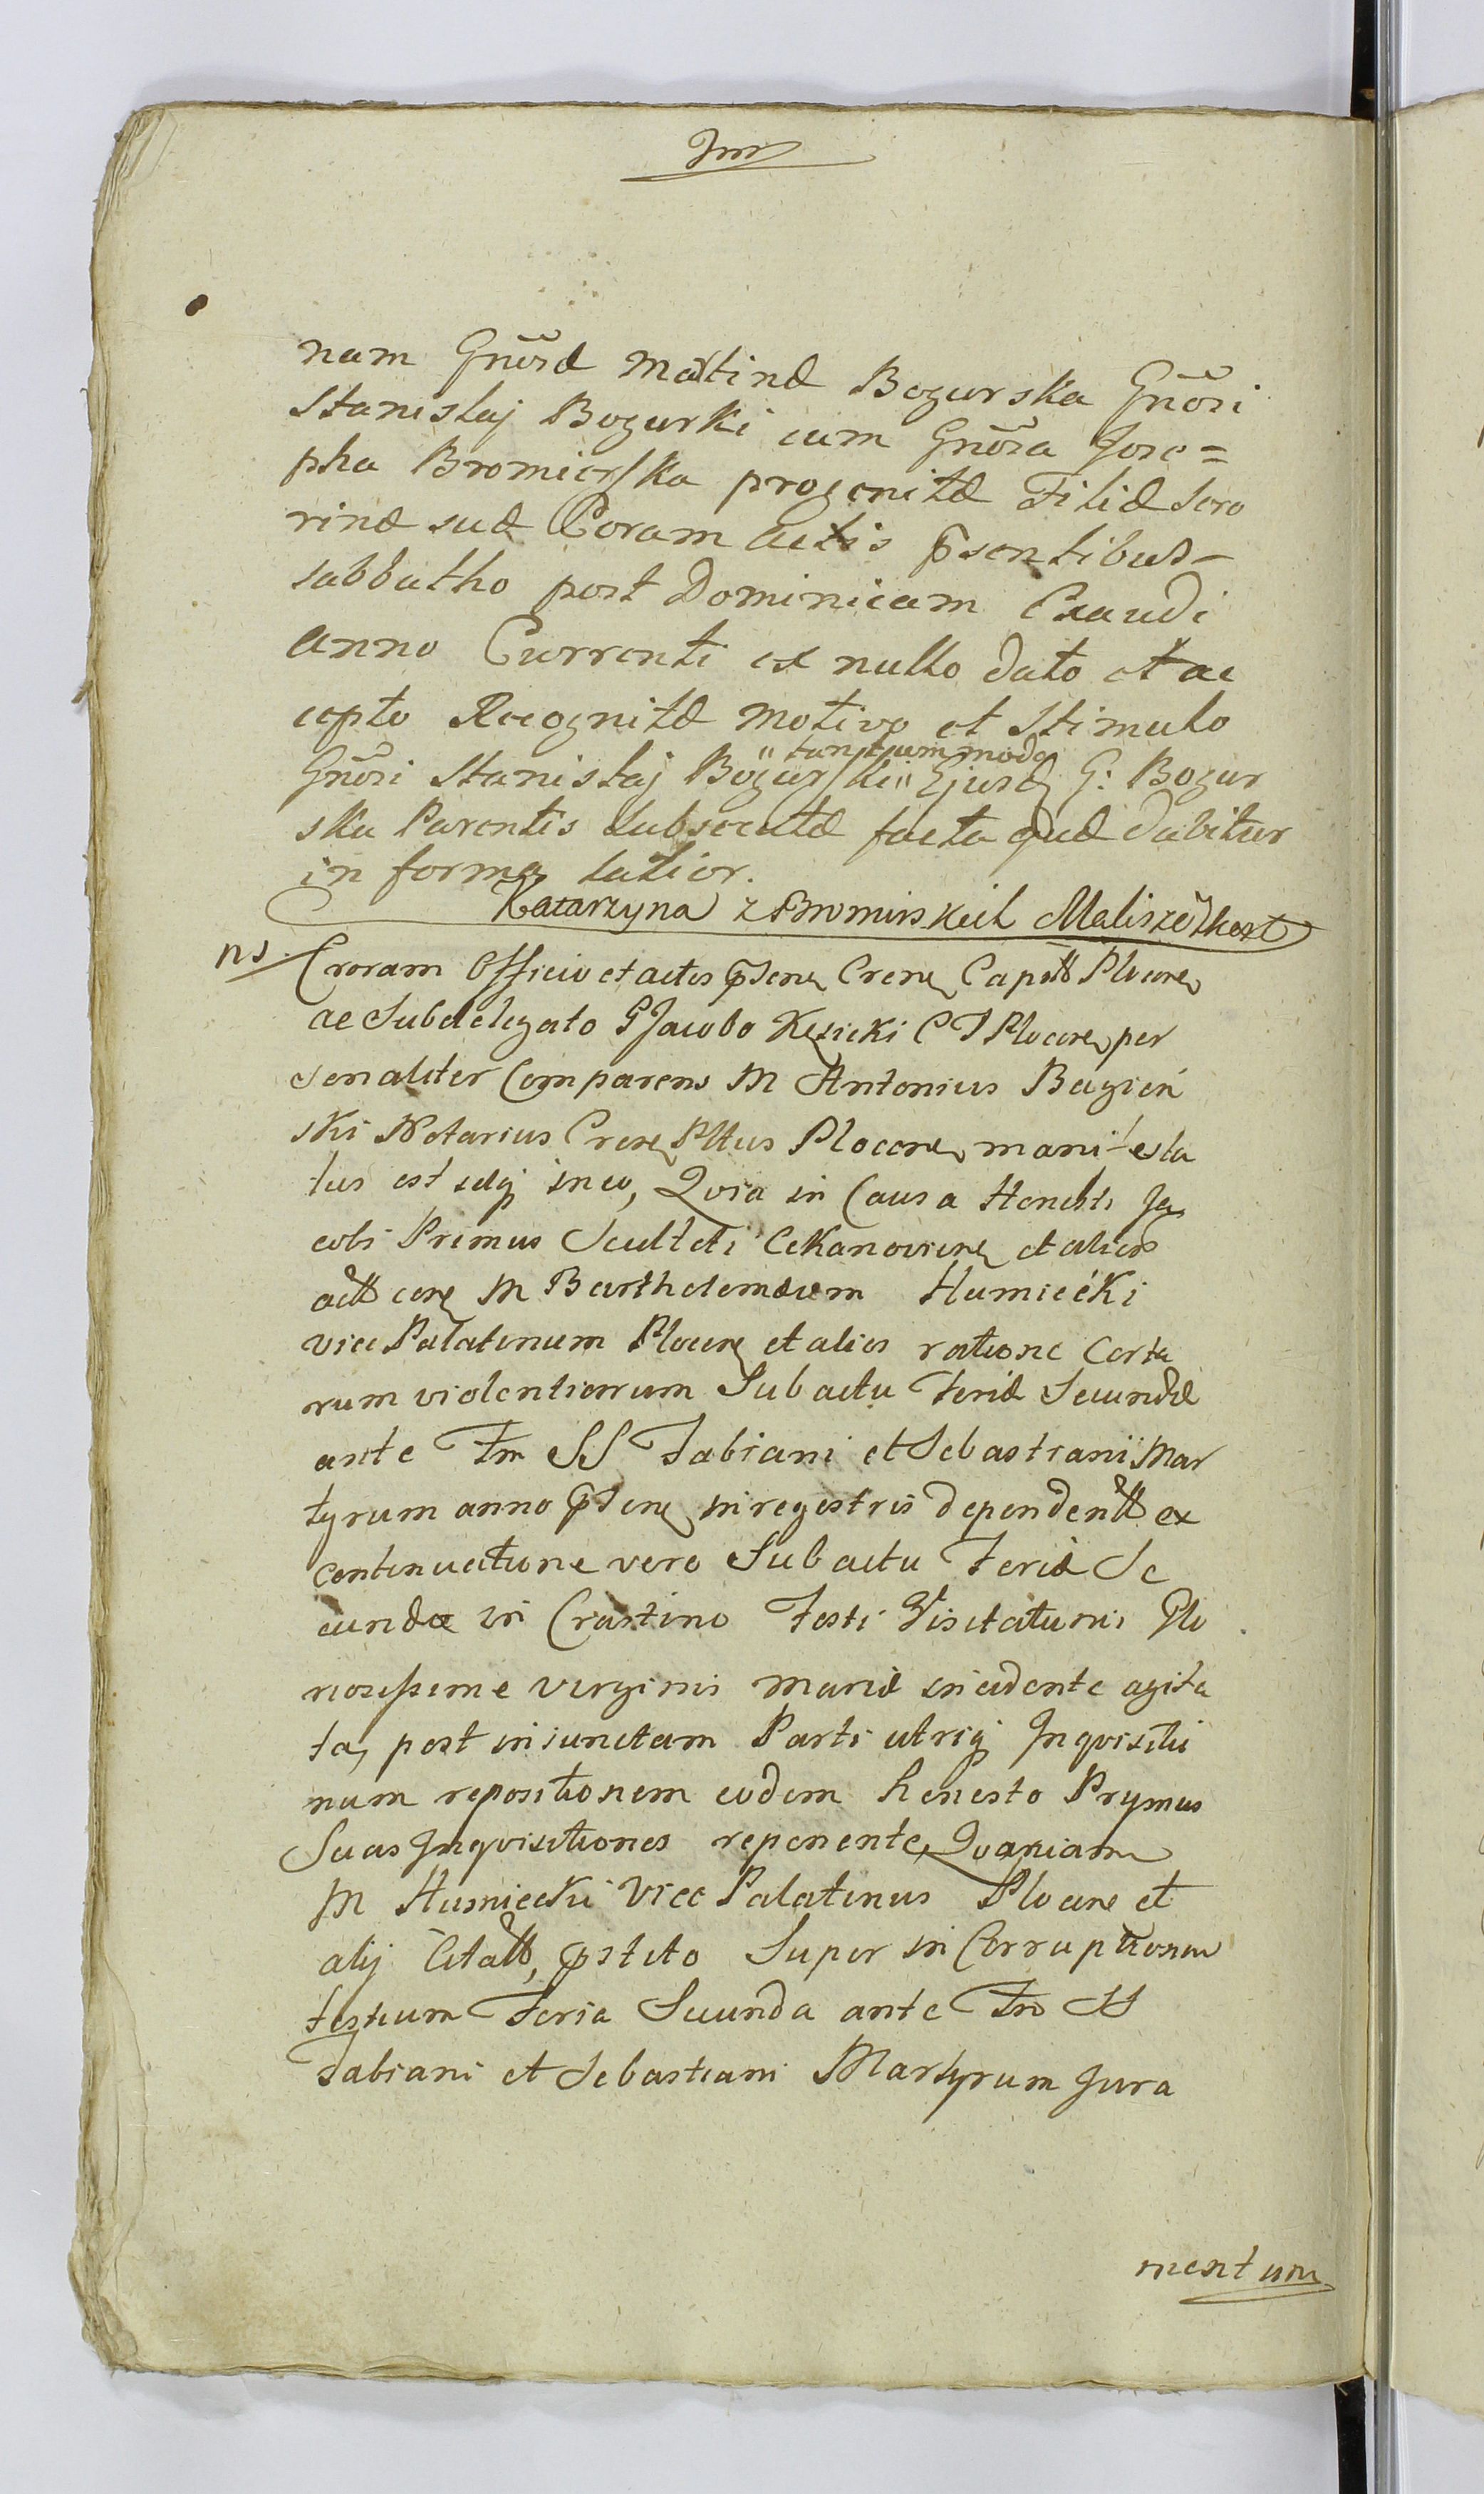 Im
nam Gnõsæ Martinæ Bogurska Gnõsi
Stanislaj Bogurki cum Gnõsa Jose=
pha Bromierska progenitæ Filiæ Soro
rinæ suæ Coram Actis p̃sentibus
sabbatho post Dominicam Exaudi
anno Currenti ex nullo dato et ac
cepto Recognitæ motivo et Stimulo
" tantummodo
Gnõsi Stanislaj Bogurski " Ejusdq G: Bogur
ska Parentis subsecutæ facta quæ dabitur
in forma latior.
Katarzyna z Bromirskich Maliszewska
ns. Coram Officio et actis p̃sen Cren Captt Plocen
ac Subdelegato G Jacobo Kęsicki C T Plocen per
sonaliter Comparens M Antonius Bagień
ski Notarius Cren Pttus Plocen manifesta
tus est seq in eo, Qvia in Causa Honesti Ja
cobi Primus Sculteti Cekanovien et alior
actt con M Bartholomæum Humiecki
vice Palatinum Plocen et alios ratione Certa
rum violentiarum Sub actu Feriæ Secundæ
ante Fm SS Fabiani et Sebastiani Mar
tyrum anno p̃sen in regestris dependentt ex
continuatione vero Sub actu Feriæ Se
cundæ in Crastino Festi Visitationis Glo
riosissime Virginis Mariæ incidente agita
ta, post injunctam Parti utriq Inqvisitio
num repositionem eodem honesto Prymus
Suas Inqvisitiones reponente, Qvaniam
M Humiecki Vice Palatinus Plocen et
alij Citatt, p̃stito Super in Corruptionem
testium Feria Secunda ante Fm SS
Fabiani et Sebastiani Martyrum Jura
mentum